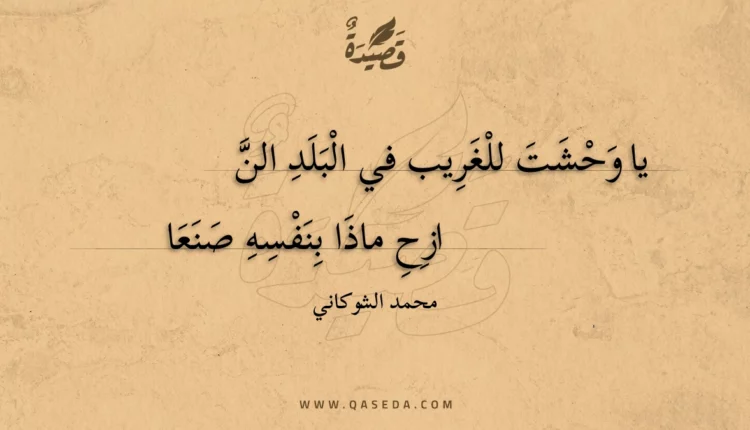 قَصِيدَةٌ
يا وَحْشَتَ للْغَرِيب في الْبَلَدِ النَّ
ازِحِ ماذَا بِنَفْسِهِ صَنَعَا
محمد الشوكاني
WWW.QASEDA.COM